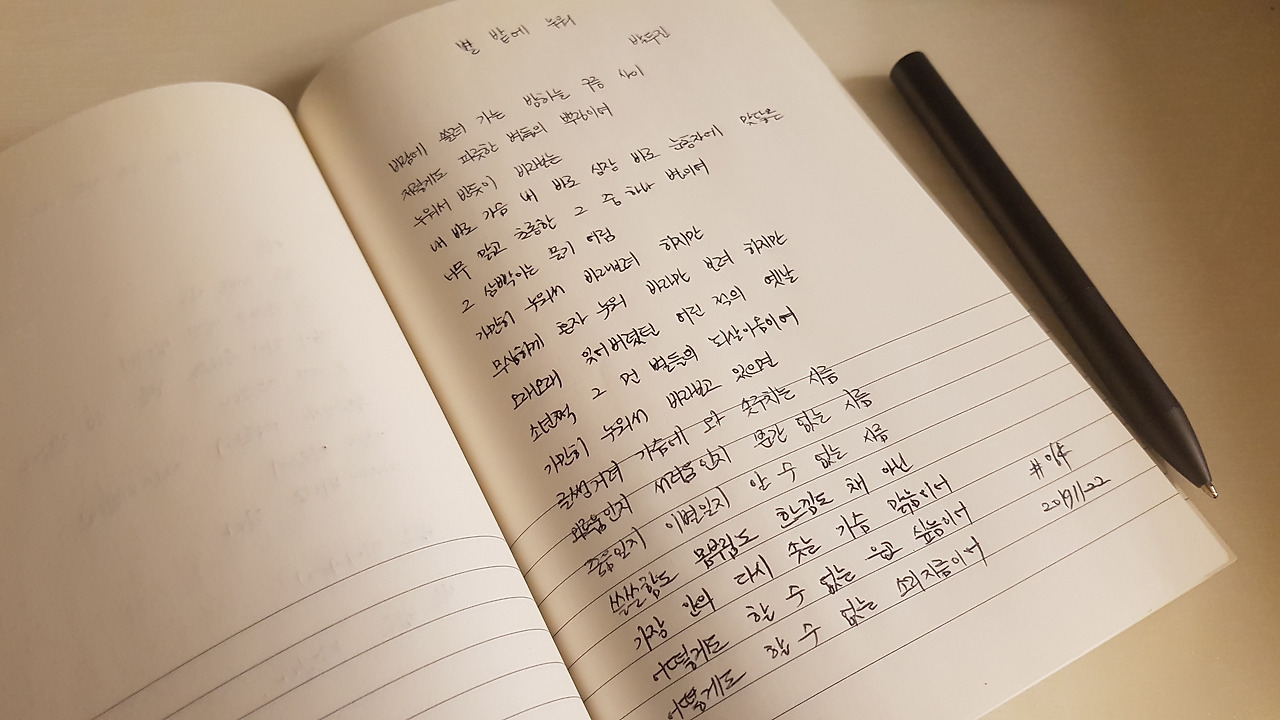 별 밭에 누워
박두진
바람에 쓸려 가는 밤하늘 구름 사이
저렇게도 파릇한 별들의 뿌림이여
누워서 반듯이 바라보는
내 바로 가슴 내 바로 심장 바로 눈동자에 맞닿은
너무 맑고 초롱한 그 중 하나 별이여
그 삼빡이는 물기 어림
가만히 누워서 바라보려 하지만
무심하게 혼자 누워 바라만 보려 하지만
오래오래 잊어버렸던 어린 적의 옛날
소년쩍 그 먼 별들의 되살아옴이여
가만히 누워서 바라보고 있으면
글썽거려 가슴에 와 솟구치는 시름
외로움인지 서러움인지 분간 없는 시름
죽음일지 이별일지 알 수 없는 시름
쓸쓸함도 몸부림도 흐느낌도 채 아닌
가장 안의 다시 솟는 가슴 맑음이어
어떻게도 할 수 없는 울고 싶음이어
어떻게도 할 수 없는 소리지름이어
20191122